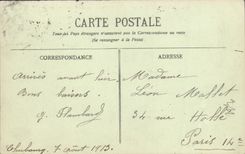 CARTE POSTALE
Tous les Pays étrangers n'acceptent pas la Correspondance au recto
(Se renseigner à la Poste)
CORRESPONDANCE
ADRESSE
arrivés avant hier,
Bons baisers
g.
7 août 1913.
Madame
Léon Mallet
34 rue Hallé
Paris 14e